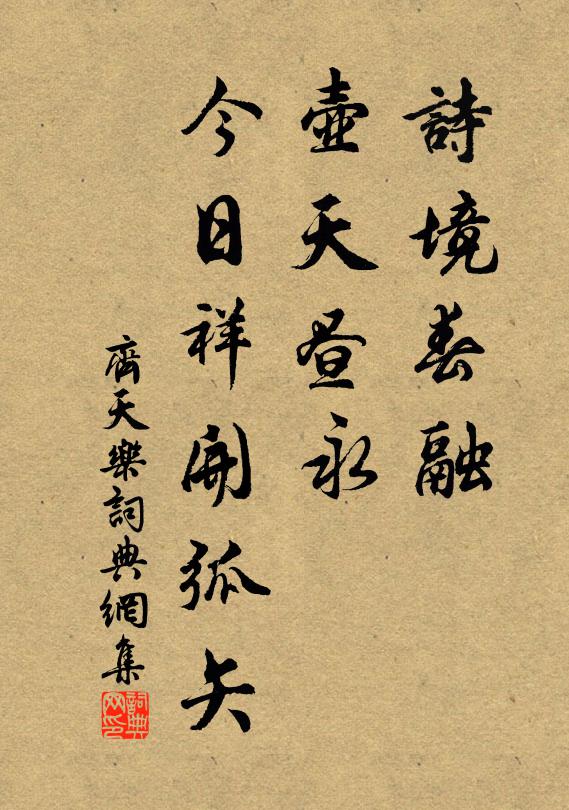 詩境春融
壺天晝永
今日祥開弧矢
齊天樂詞典網集
詞典网印